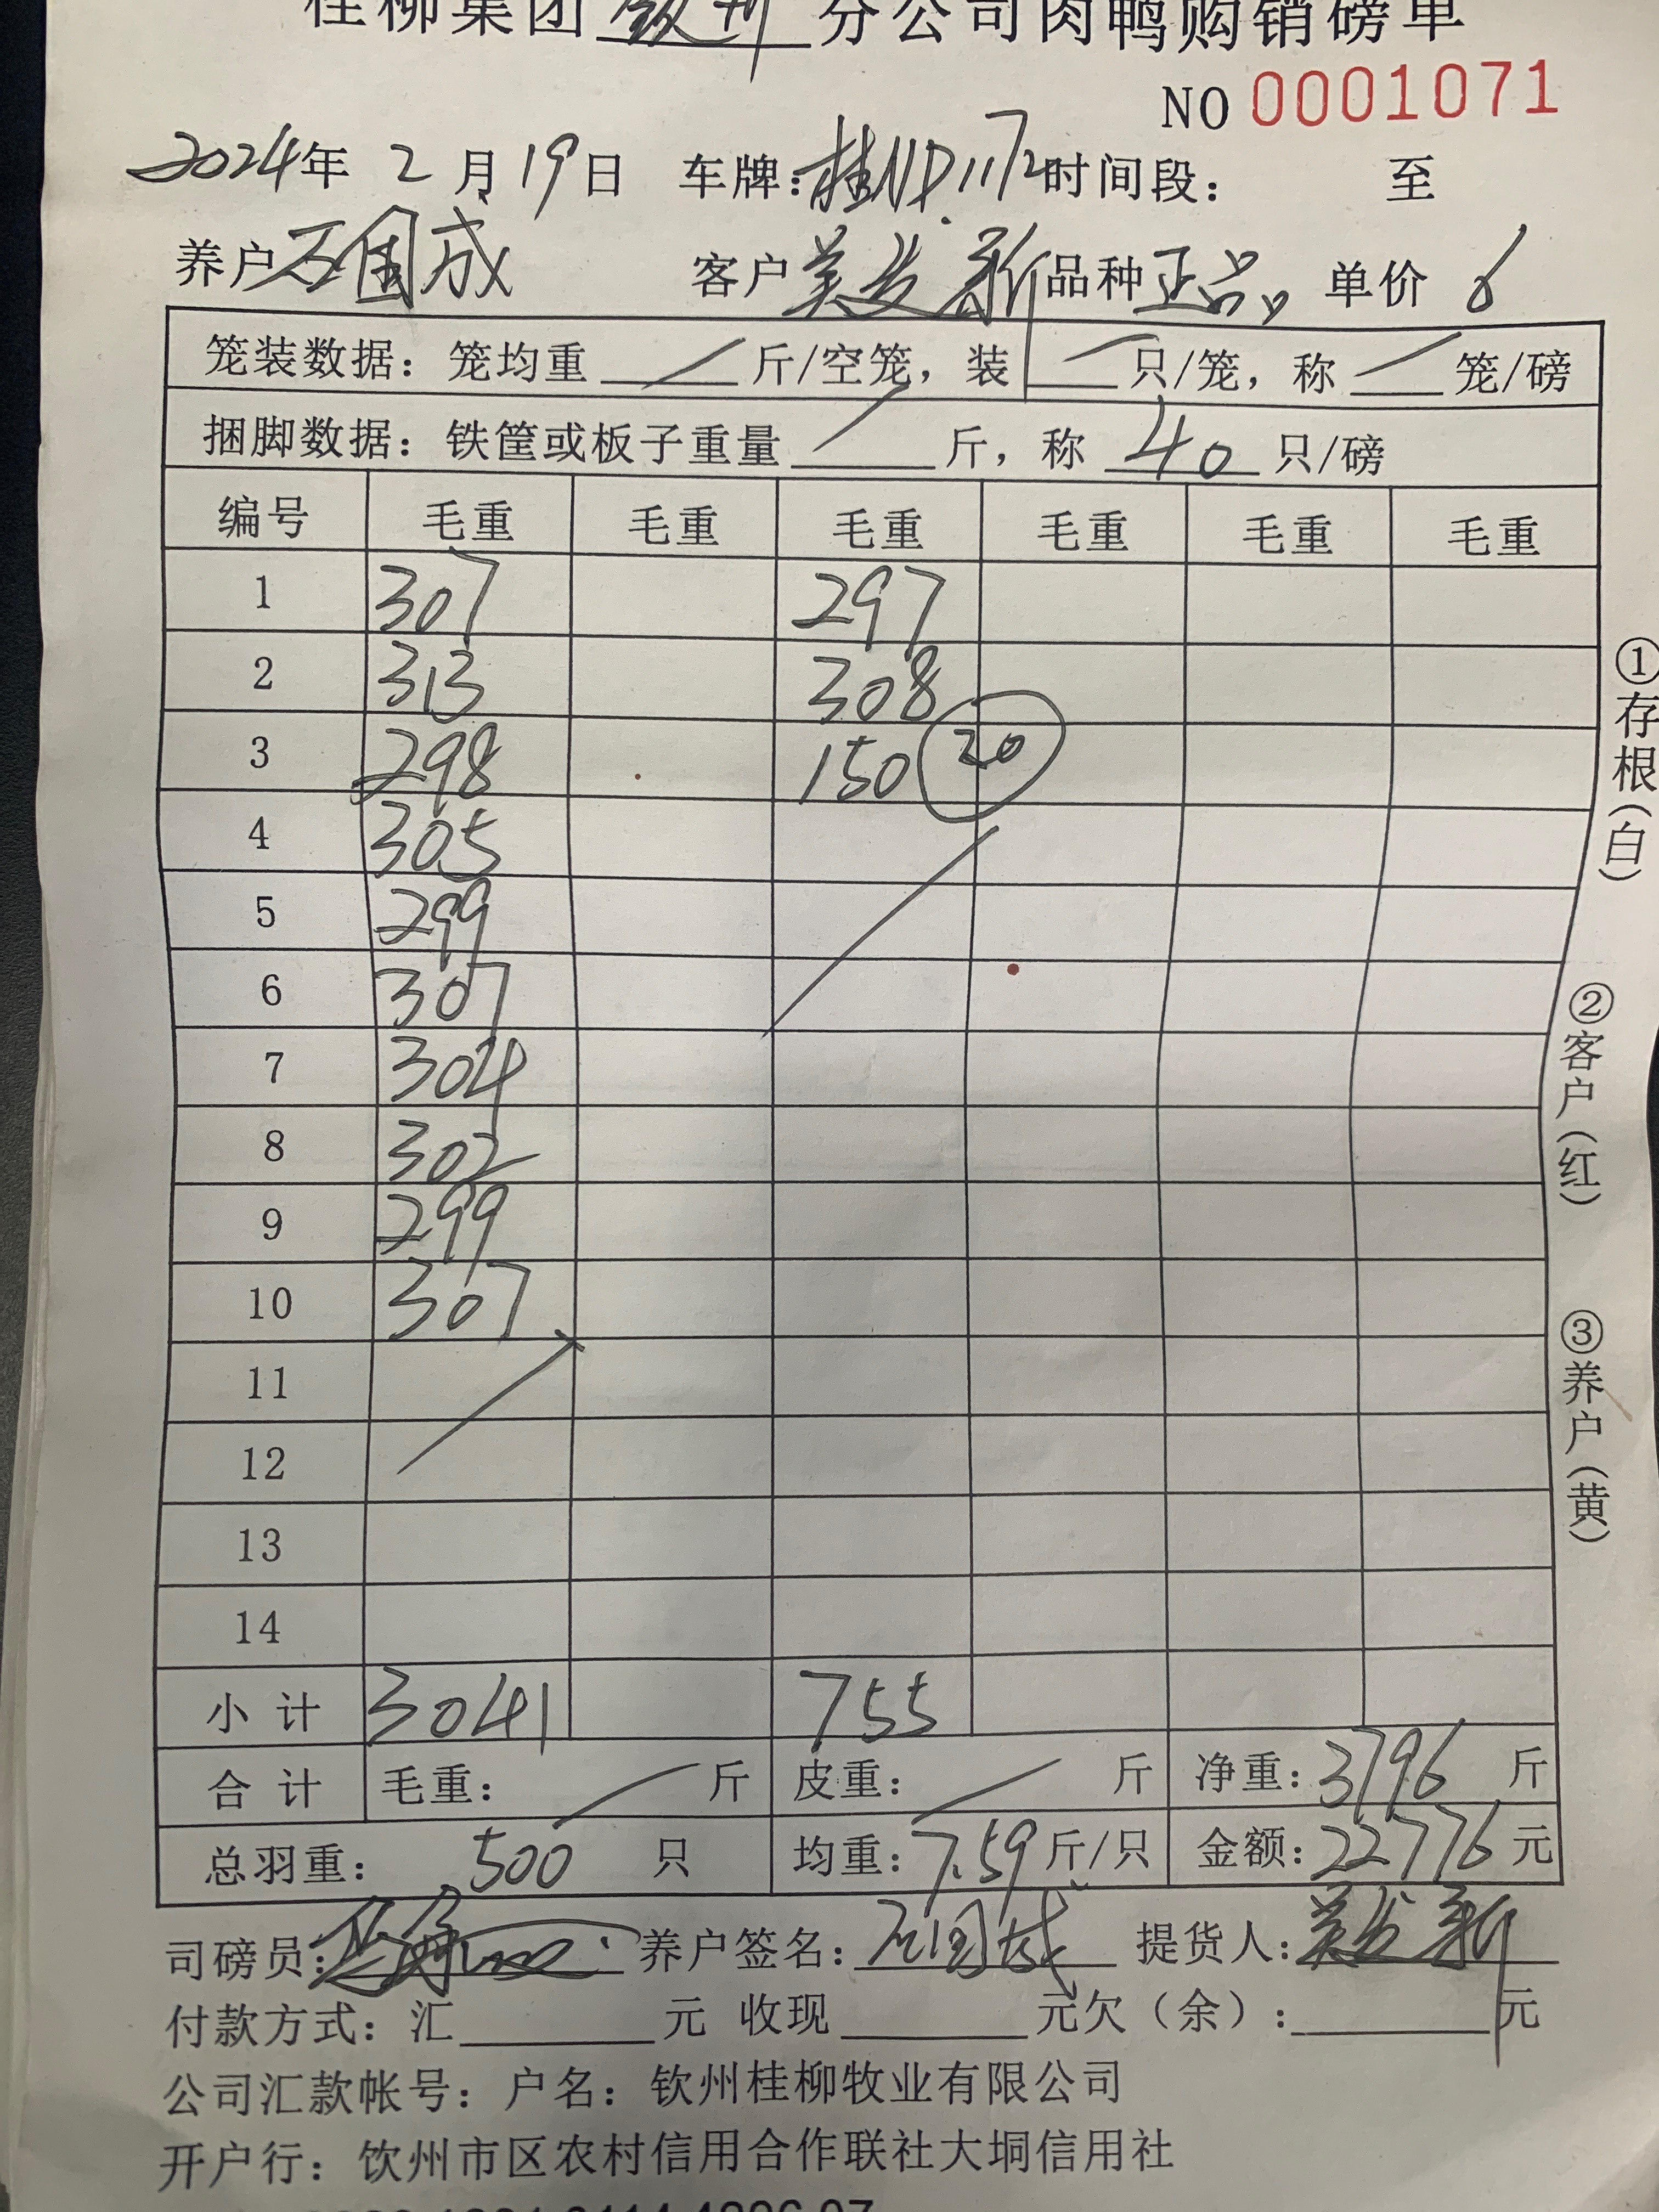 桂柳集团 钦州 分公司肉鸭购销磅单
NO 0001071
2024年 2 月 19日 车牌: 桂ND1172 时间段: 至
养户 石国成 客户 发新 品种 正品 单价 6
笼装数据: 笼均重 / 斤/空笼, 装 / 只/笼, 称 / 笼/磅
捆脚数据: 铁筐或板子重量 / 斤, 称 40 只/磅
编号 毛重 毛重 毛重 毛重 毛重 毛重
1 307 297
2 313 308
3 298 150 20
4 305
5 299
6 307
7 304
8 302
9 299
10 307
11
12
13
14
小计 3041 755
合计 毛重: / 斤 皮重: / 斤 净重: 3796 斤
总羽重: 500 只 均重: 7.59 斤/只 金额: 22776 元
司磅员: 养户签名: 石国成 提货人: 发新
付款方式: 汇 元 收现 元欠（余）: 元
公司汇款帐号: 户名: 钦州桂柳牧业有限公司
开户行: 钦州市区农村信用合作联社大垌信用社
①存根(白)
②客户(红)
③养户(黄)